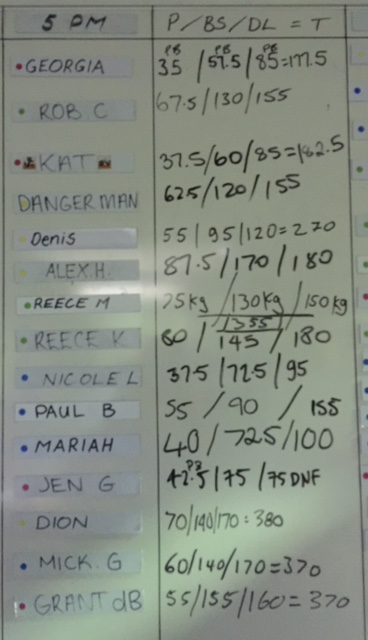 5 PM P/BS/DL = T
GEORGIA PB PB PB
35/57.5/85=177.5
ROB C 67.5/130/155
KAT 37.5/60/85=182.5
DANGERMAN 62.5/120/155
Denis 55/95/120=270
ALEX.H. 87.5/170/180
REECE M 75kg/130kg/150kg
355
REECE K 60/145/180
NICOLE L 37.5/72.5/95
PAUL B 55/90/155
MARIAH 40/72.5/100
JEN G PB
42.5/75/75 DNF
DION 70/140/170=380
MICK.G 60/140/170=370
GRANT dB 55/155/160=370